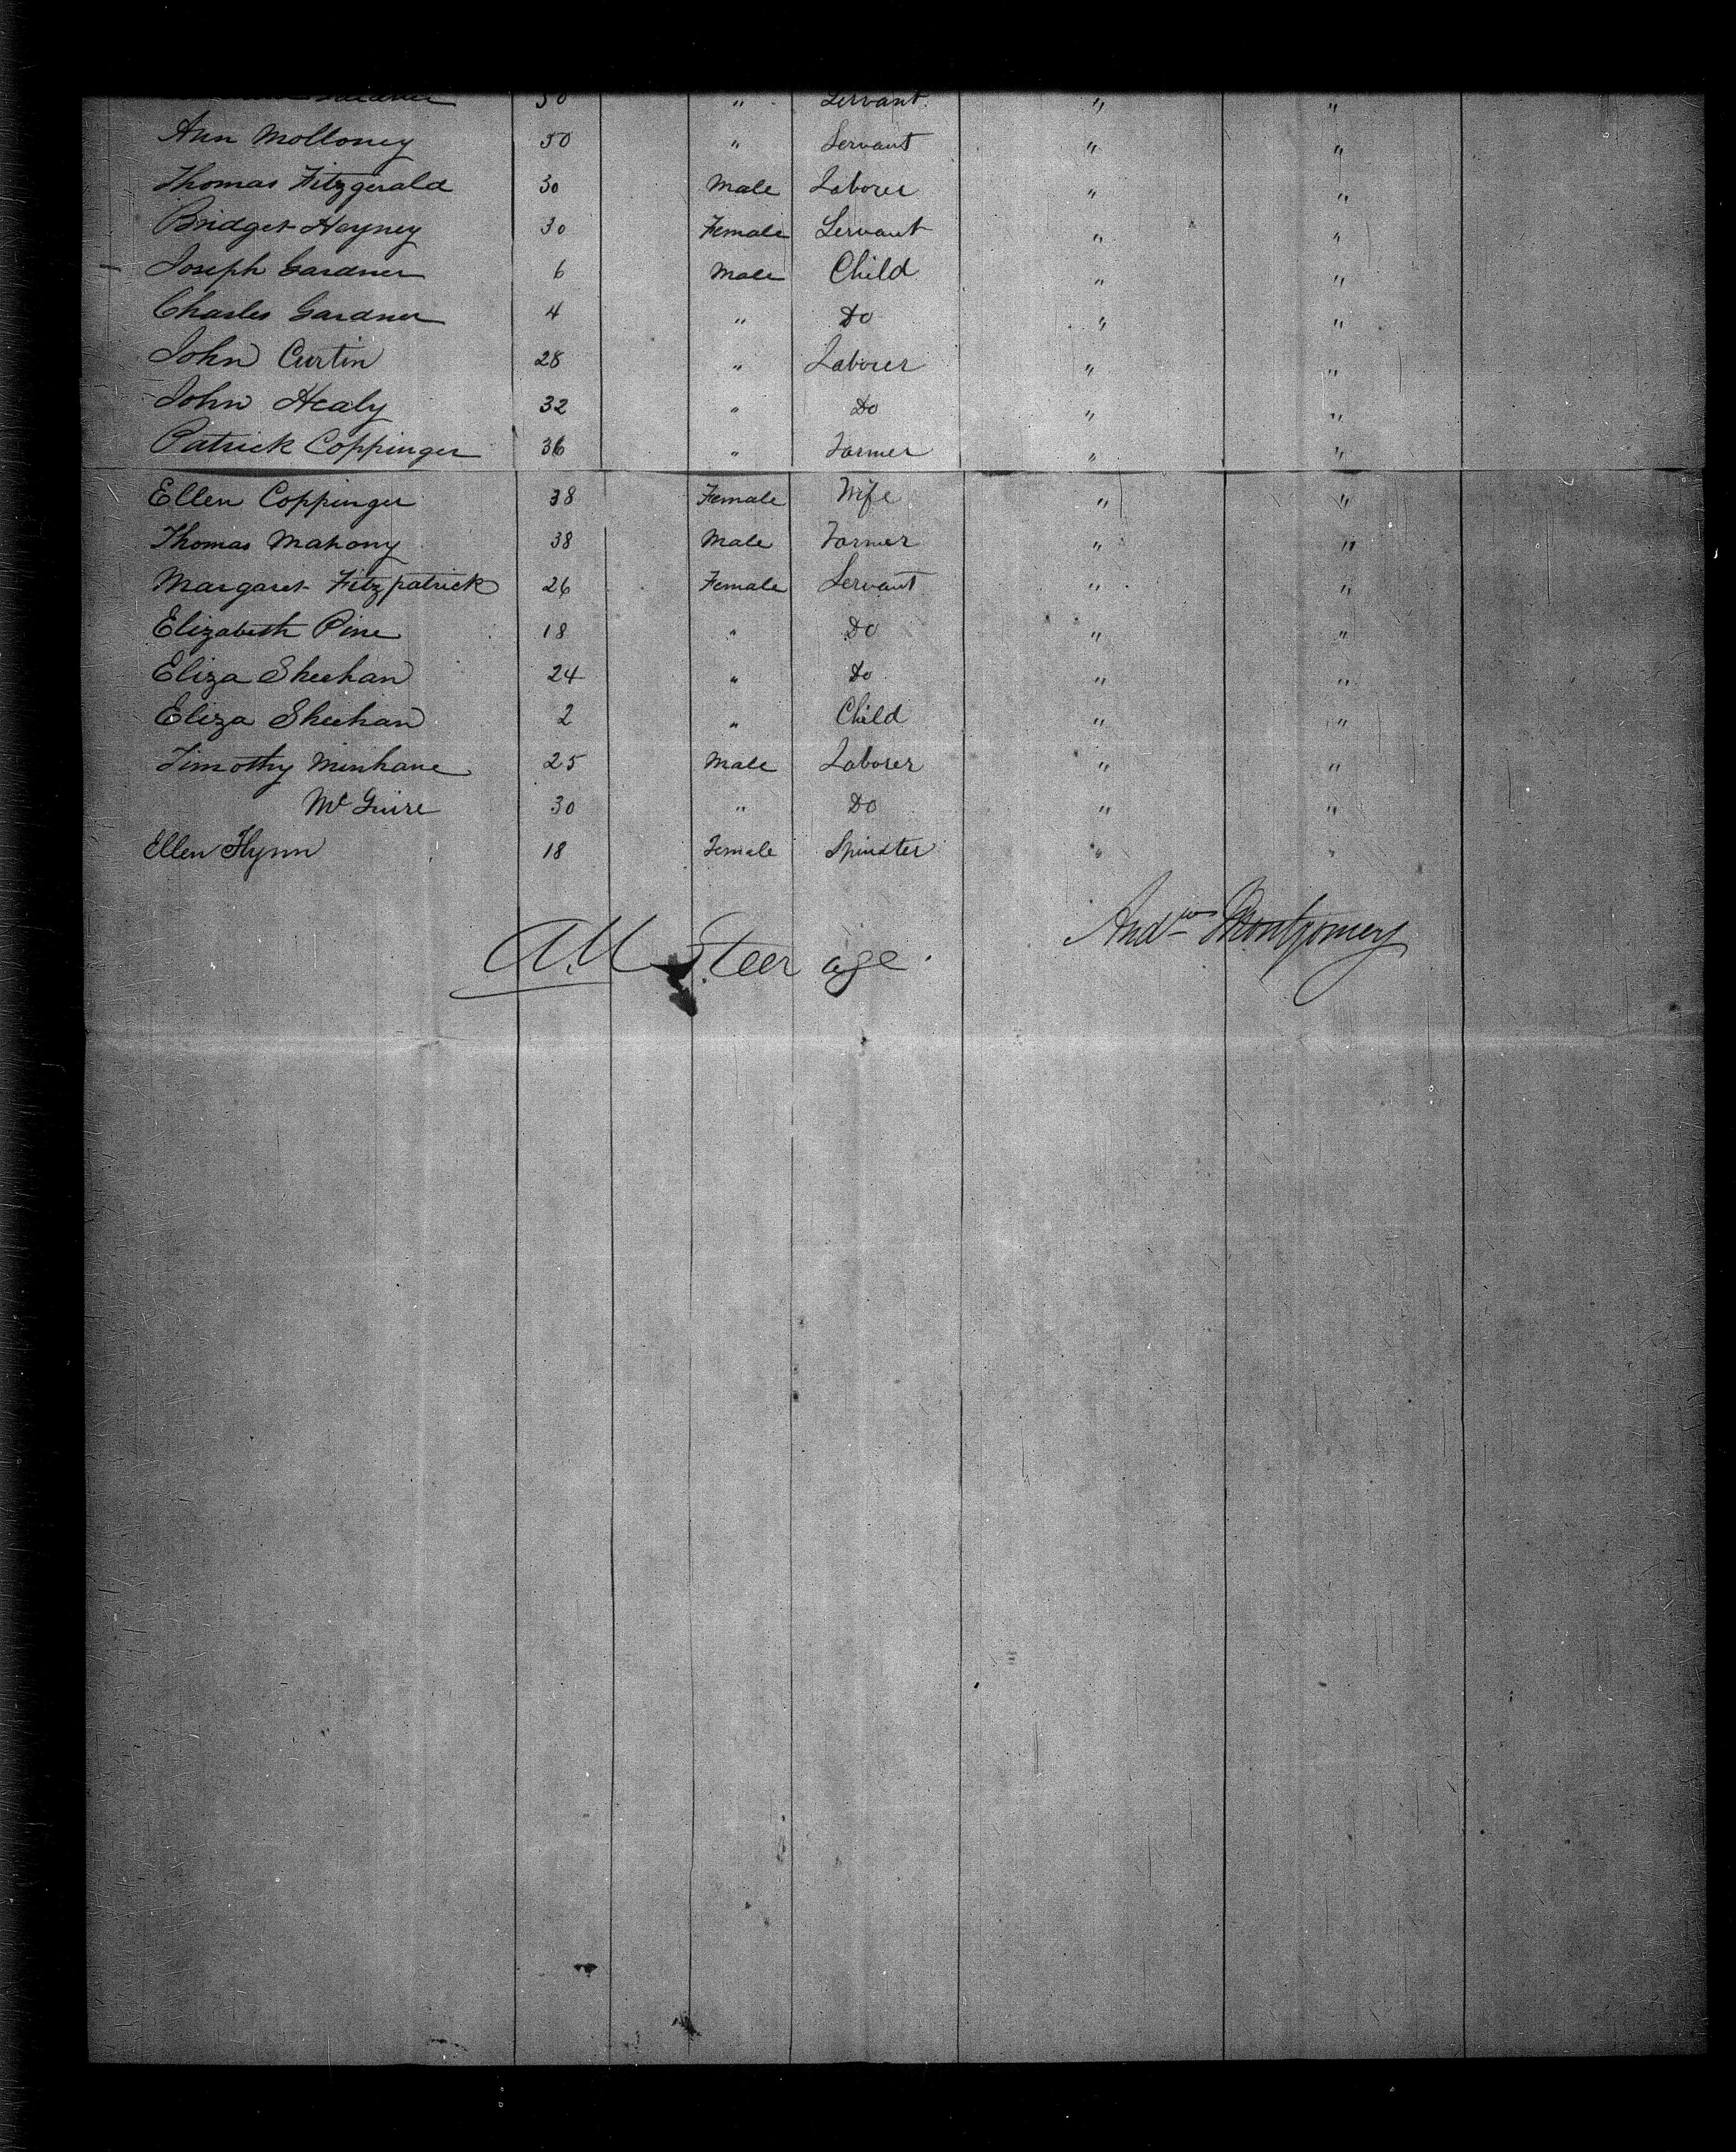 Gardner 30 " Servant " "
Ann Molloney 50 " Servant " "
Thomas Fitzgerald 30 Male Laborer " "
Bridget Hayney 30 Female Servant " "
Joseph Gardner 6 Male Child " "
Charles Gardner 4 " Do " "
John Curtin 28 " Laborer " "
John Healy 32 " Do " "
Patrick Coppinger 36 " Farmer " "
Ellen Coppinger 38 Female Wife " "
Thomas Mahony 38 Male Farmer " "
Margaret Fitzpatrick 26 Female Servant " "
Elizabeth Pine 18 " Do " "
Eliza Sheehan 24 " Do " "
Eliza Sheehan 2 " Child " "
Timothy Minhane 25 Male Laborer " "
Mc Guire 30 " Do " "
Ellen Flynn 18 Female Spinster " "
Andws Montgomery
All Steerage.